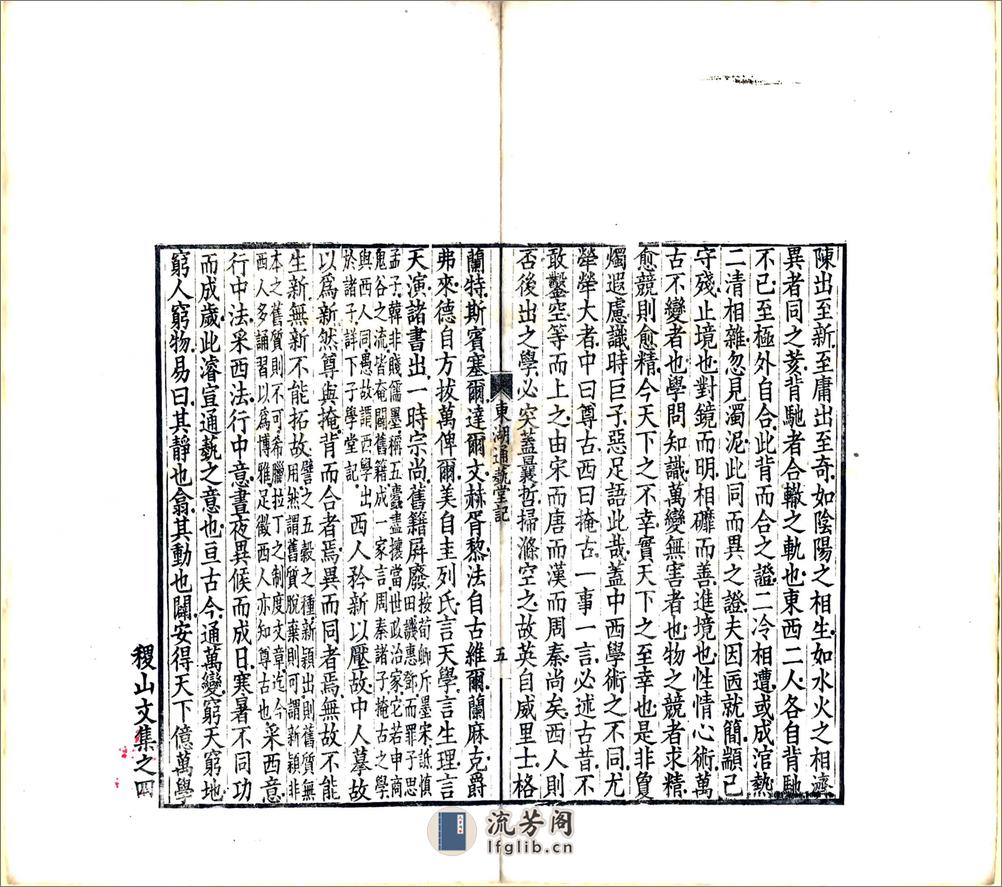 陳出至新至庸出至奇如陰陽之相生如水火之相濟
異者同之荄背馳者合轍之軌也東西二人各自背馳
不已至極外自合此背而合之證二冷相遭或成涫熱
二清相雜忽見濁泥此同而異之證夫因匧就簡顓己
守殘止境也對鏡而明相礲而善進境也性情心術萬
古不變者也學問知識萬變無害者也物之競者求精
愈競則愈精今天下之不幸實天下之至幸也是非敻
燭遐慮識時巨子惡足語此哉蓋中西學術之不同尤
犖犖大者中曰尊古西曰掩古一事一言必述古昔不
敢鑿空等而上之由宋而唐而漢而周秦尚矣西人則
否後出之學必突蓋曩哲掃滌空之故英自威里士格
東湖通藝堂記
五
蘭特斯賓塞爾達爾文赫胥黎法自古維爾蘭麻克爵
弗來德自方拔萬俾爾美自圭列氏言天學言生理言
天演諸書出一時宗尚舊籍屏廢按荀卿斥墨宋詆慎田譏惠鄧而罪于思
孟子韓非賤儒墨稱五蠹盡攘當世政治家它若申商
鬼谷之流皆奄闢舊籍成一家言周秦諸子掩古之學
與西人同愚故謂西學出
於諸子詳下子學堂記西人矜新以壓故中人摹故
以爲新然尊與掩背而合者焉異而同者焉無故不能
生新無新不能拓故譬之五穀之種新穎出則舊質無用然謂舊質脫棄則可謂新穎非
本之舊質則不可希臘拉丁之制度文章迄今
西人多誦習以爲博雅足徵西人亦知尊古也采西意
行中法采西法行中意晝夜異候而成日寒暑不同功
而成歲此濬宣通藝之意也亘古今通萬變窮天窮地
窮人窮物易曰其靜也翕其動也闢安得天下億萬學
稷山文集之四
流芳阁
lfglib.cn